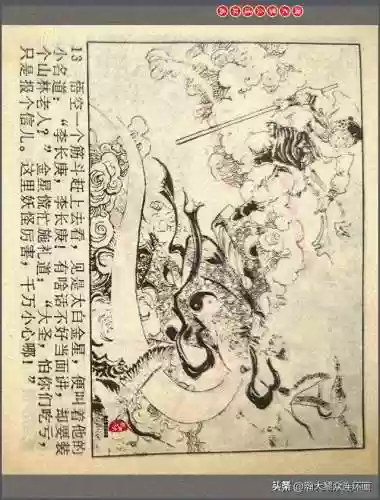 13 悟空一个筋斗赶上去看，见是太白金星，便叫着他的
小名道：“李长庚，李长庚！有啥话不好当面讲，却要装
个山林老人？”金星慌忙施礼道：“大圣，怕你们吃亏，
只是报个信儿。这里妖怪厉害，千万小心哪！”
头条 @瀚大黎众连环画